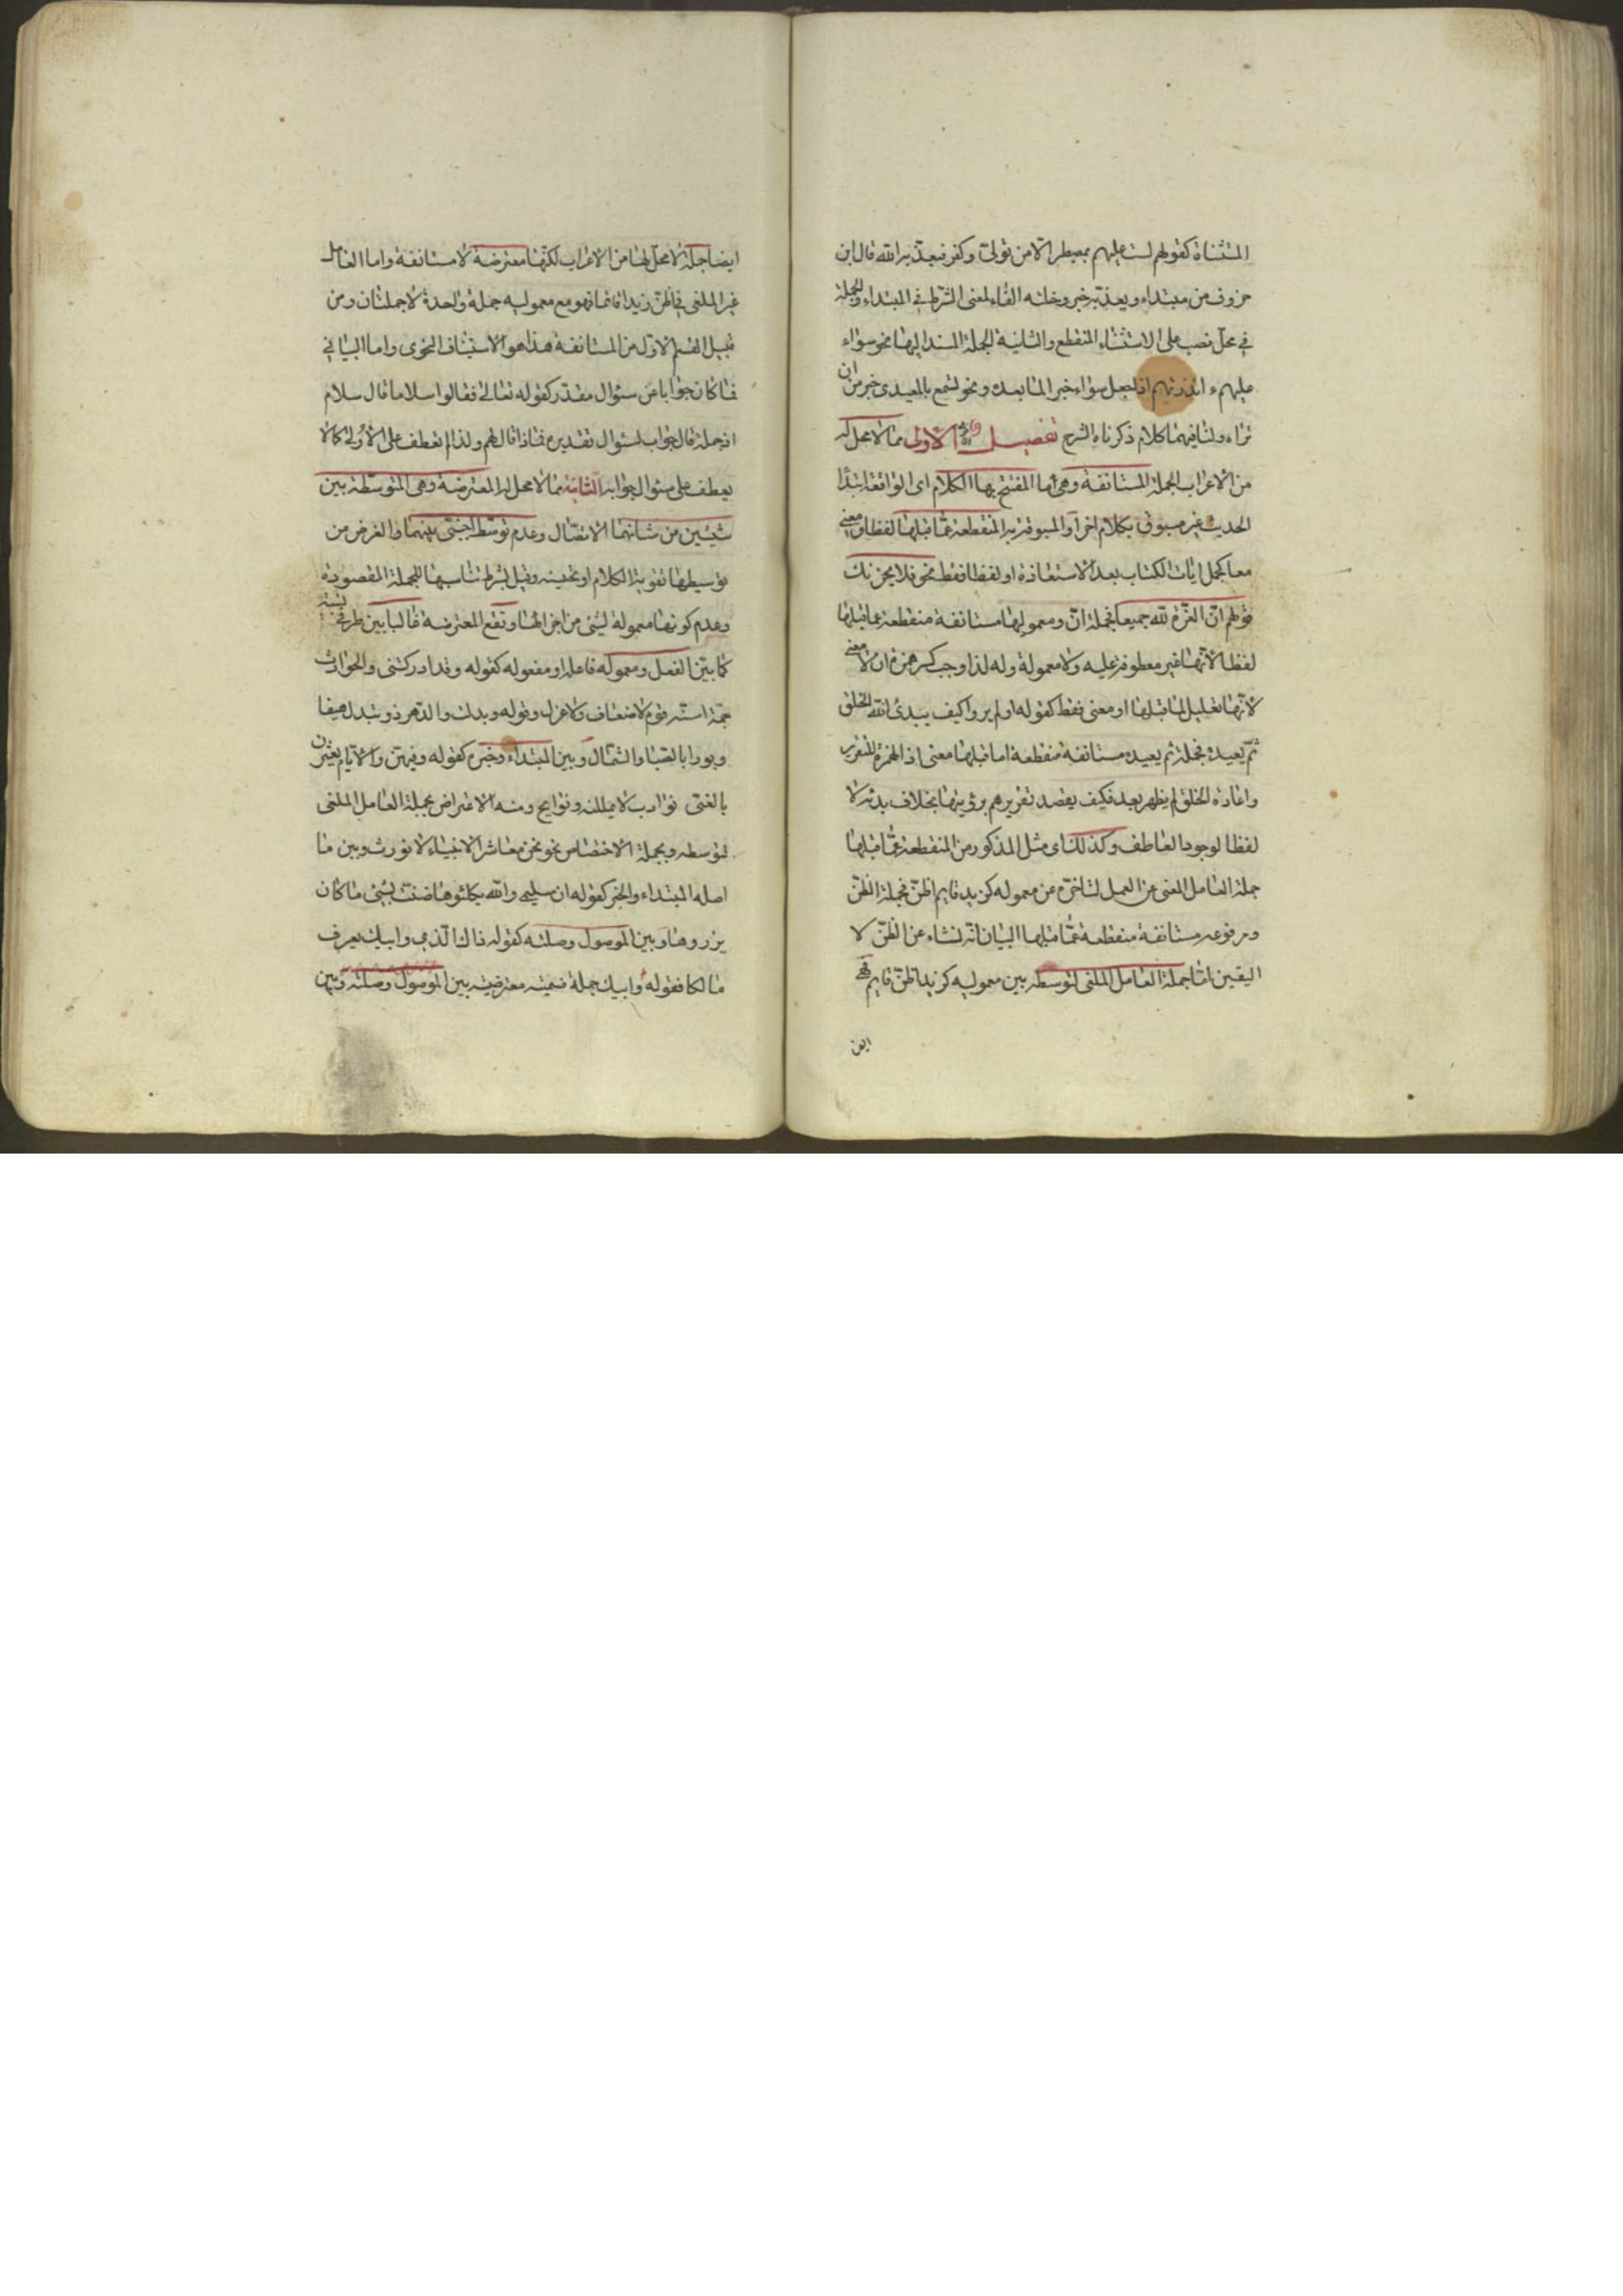 المستثناة كقولهم لست عليهم بمصيطر الا من تولى وكفر فيعذبه الله قال ابن
خروف من مبتداء ويعذبه خبر ودخلته الفاء لمعنى الشرط في المبتداء والجملة
في محل نصب على الاستثناء المنقطع والثانية الجملة المسند اليها نحو سواء
عليهم ء انذرتهم اذا جعل سواء خبرا لما بعده ونحو تسمع بالمعيدى خير من ان
تراه ولنا فيهما كلام ذكرناه الشرح تفصيل الاولى مما لا محل له
من الاعراب الجملة المستانفة وهى اما المفتتح بها الكلام اى الواقعة ابتداً
الحديث غير مسبوق بكلام اخر او المسبوقة به المنقطعة عما قبلها لفظا ومعنى
معا كجمل ايات الكتاب بعد الاستعاذة او لفظا فقط نحو فلا يحزنك
قولهم ان العزة لله جميعا فجملة ان ومعمولها مستانفة منقطعة عما قبلها
لفظا لانها غير معطوفة عليه ولا معمولة وله لذا وجب كسر همزة ان لا معنى
لانها تعليل لما قبلها او معنى فقط كقوله اولم يروا كيف يبدئ الله الخلق
ثم يعيده فجملة ثم يعيده مستانفة منقطعة اما قبلها معنى اذ الهمزة للتقرير
واعادة الخلق لم يظهر بعد فكيف يقصد تقريرهم برؤيتها بخلاف بدئه لا
لفظا لوجود العاطف وكذلك اى مثل المذكور من المنقطعة عما قبلها
جملة العامل الملغى عن العمل لتاخره عن معموله كزيد قايم اظن فجملة اظن
ومرفوعه مستانفة منقطعة عما قبلها البيان انه نشاء عن الظن لا
اليقين اما جملة العامل الملغى لتوسطه بين معموليه كزيد اظن قايم فهى
ايضا
ايضا جملة لا محل لها من الاعراب لكنها معترضة لا مستانفة واما العامل
غير الملغى في اظن زيدا قائما فهو مع معموليه جملة واحدة لا جملتان ومن
قبيل القسم الاول من المستانفة هذا هو الاستيناف النحوى واما البيانى
فما كان جوابا عن سئوال مقدر كقوله تعالى فقالوا سلاما قال سلام
اذ جملة قال جواب لسئوال تقديره فماذا قال لهم ولذا لم تعطف على الاولى كما لا
يعطف على سئوال جوابه الثانية مما لا محل له المعترضة وهى المتوسطة بين
شيئين من شانهما الاتصال وعدم توسط اجنبى بينهما والغرض من
توسيطها تقوية الكلام او تحسينه وقيل بشرط تناسبها للجملة المقصودة
وعدم كونها معمولة لشئ من اجزائها وتقع المعترضة غالبا بين طرفى نسبة
كما بين الفعل ومعموله فاعله او مفعوله كقوله وقد ادركتنى والحوادث
جمة اسنة قوم لا ضعاف ولا عزل وقوله وبدلت والدهر ذو تبدل هيفا
ودبورا بالصبا والشمال وبين المبتداء وخبره كقوله وفيهن والايام يعثرن
بالفتى نوادب لا يمللنه ونوايح ومنه الاعتراض بجملة العامل الملغى
لتوسطه وبجملة الاختصاص نحو نحن معاشر الانبياء لا نورث وبين ما
اصله المبتداء والخبر كقوله ان سليمى والله يكلئوها ضنت بشئ ما كان
يرزوها وبين الموصول وصلته كقوله ذاك الذى وابيك يعرف
مالكا فقوله وابيك جملة قسمية معترضة بين الموصول وصلته وبين